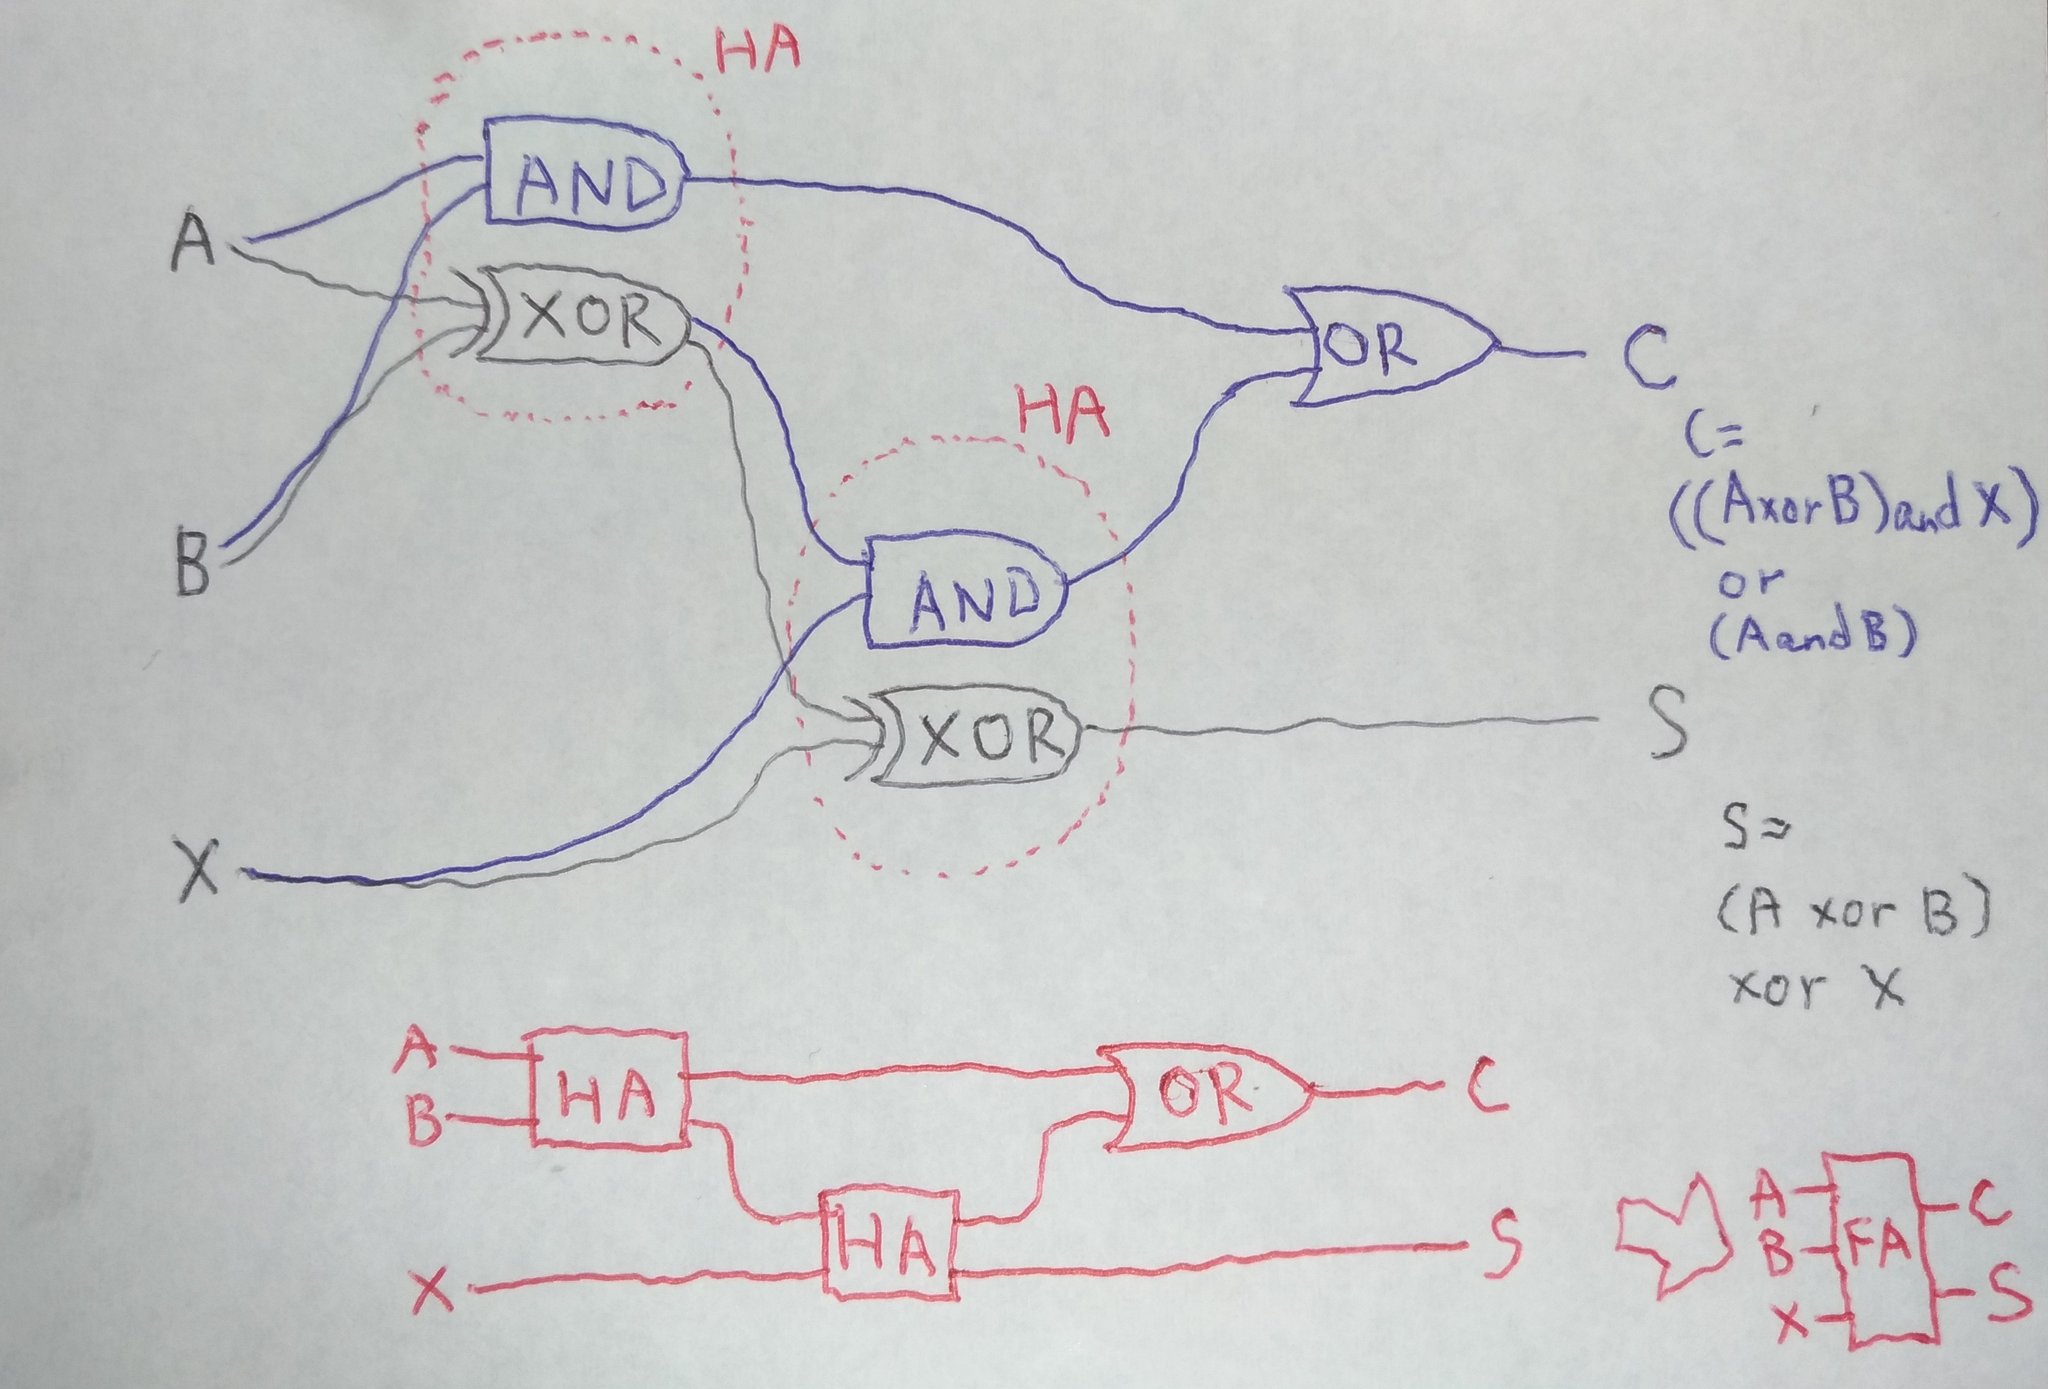 HA
AND
A
XOR
OR
C
HA
C=
((A xor B) and X)
or
(A and B)
B
AND
XOR
S
X
S=
(A xor B)
xor X
A
B
HA
OR
C
X
HA
S
A
B
X
FA
C
S